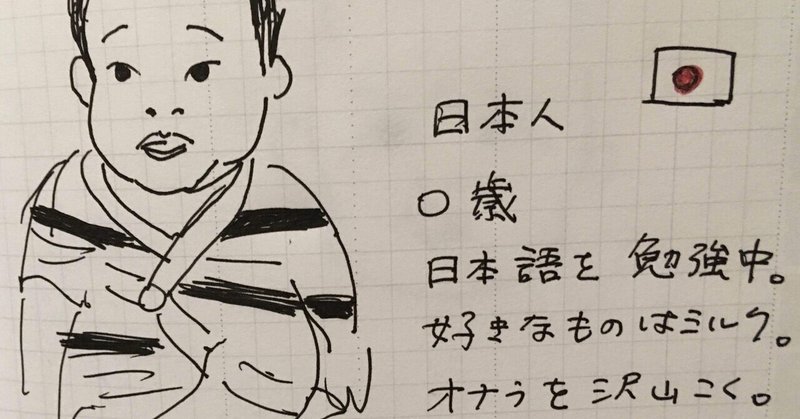 日本人
0歳
日本語を勉強中。
好きなものはミルク。
オナラを沢山こく。